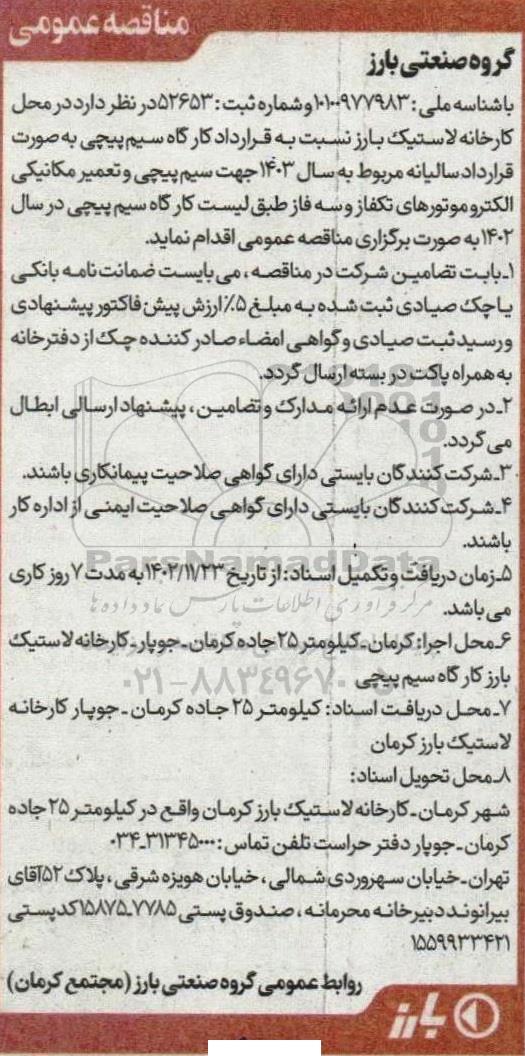 مناقصه عمومی
گروه صنعتی بارز
باشناسه ملی: ۱۰۱۰۰۹۷۷۹۸۳ و شماره ثبت: ۵۲۶۵۳ در نظر دارد در محل
کارخانه لاستیک بارز نسبت به قرارداد کارگاه سیم پیچی به صورت
قرارداد سالیانه مربوط به سال ۱۴۰۳ جهت سیم پیچی و تعمیر مکانیکی
الکتروموتورهای تکفاز و سه فاز طبق لیست کارگاه سیم پیچی در سال
۱۴۰۲ به صورت برگزاری مناقصه عمومی اقدام نماید.
۱ـ بابت تضامین شرکت در مناقصه، می بایست ضمانت نامه بانکی
یا چک صیادی ثبت شده به مبلغ ۵٪ ارزش پیش فاکتور پیشنهادی
و رسید ثبت صیادی و گواهی امضاء صادر کننده چک از دفترخانه
به همراه پاکت در بسته ارسال گردد.
۲ـ در صورت عدم ارائه مدارک و تضامین، پیشنهاد ارسالی ابطال
می گردد.
۳ـ شرکت کنندگان بایستی دارای گواهی صلاحیت پیمانکاری باشند.
۴ـ شرکت کنندگان بایستی دارای گواهی صلاحیت ایمنی از اداره کار
باشند.
ParsNamadData
۵ـ زمان دریافت و تکمیل اسناد: از تاریخ ۱۴۰۲/۱۱/۲۳ به مدت ۷ روز کاری
مرکز فرآوری اطلاعات پارس نماد داده ها
می باشد.
۶ـ محل اجرا: کرمان ـ کیلومتر ۲۵ جاده کرمان ـ جوپار ـ کارخانه لاستیک
بارز کارگاه سیم پیچی
۰۲۱-۸۸۳۴۹۶۷۰
۷ـ محل دریافت اسناد: کیلومتر ۲۵ جاده کرمان ـ جوپار کارخانه
لاستیک بارز کرمان
۸ـ محل تحویل اسناد:
شهر کرمان ـ کارخانه لاستیک بارز کرمان واقع در کیلومتر ۲۵ جاده
کرمان ـ جوپار دفتر حراست تلفن تماس: ۳۱۳۴۵۰۰۰ـ۰۳۴
تهران ـ خیابان سهروردی شمالی، خیابان هویزه شرقی، پلاک ۵۲ آقای
بیرانوند دبیرخانه محرمانه، صندوق پستی ۷۷۸۵ـ۱۵۸۷۵ کدپستی
۱۵۵۹۹۳۳۴۲۱
روابط عمومی گروه صنعتی بارز (مجتمع کرمان)
بارز